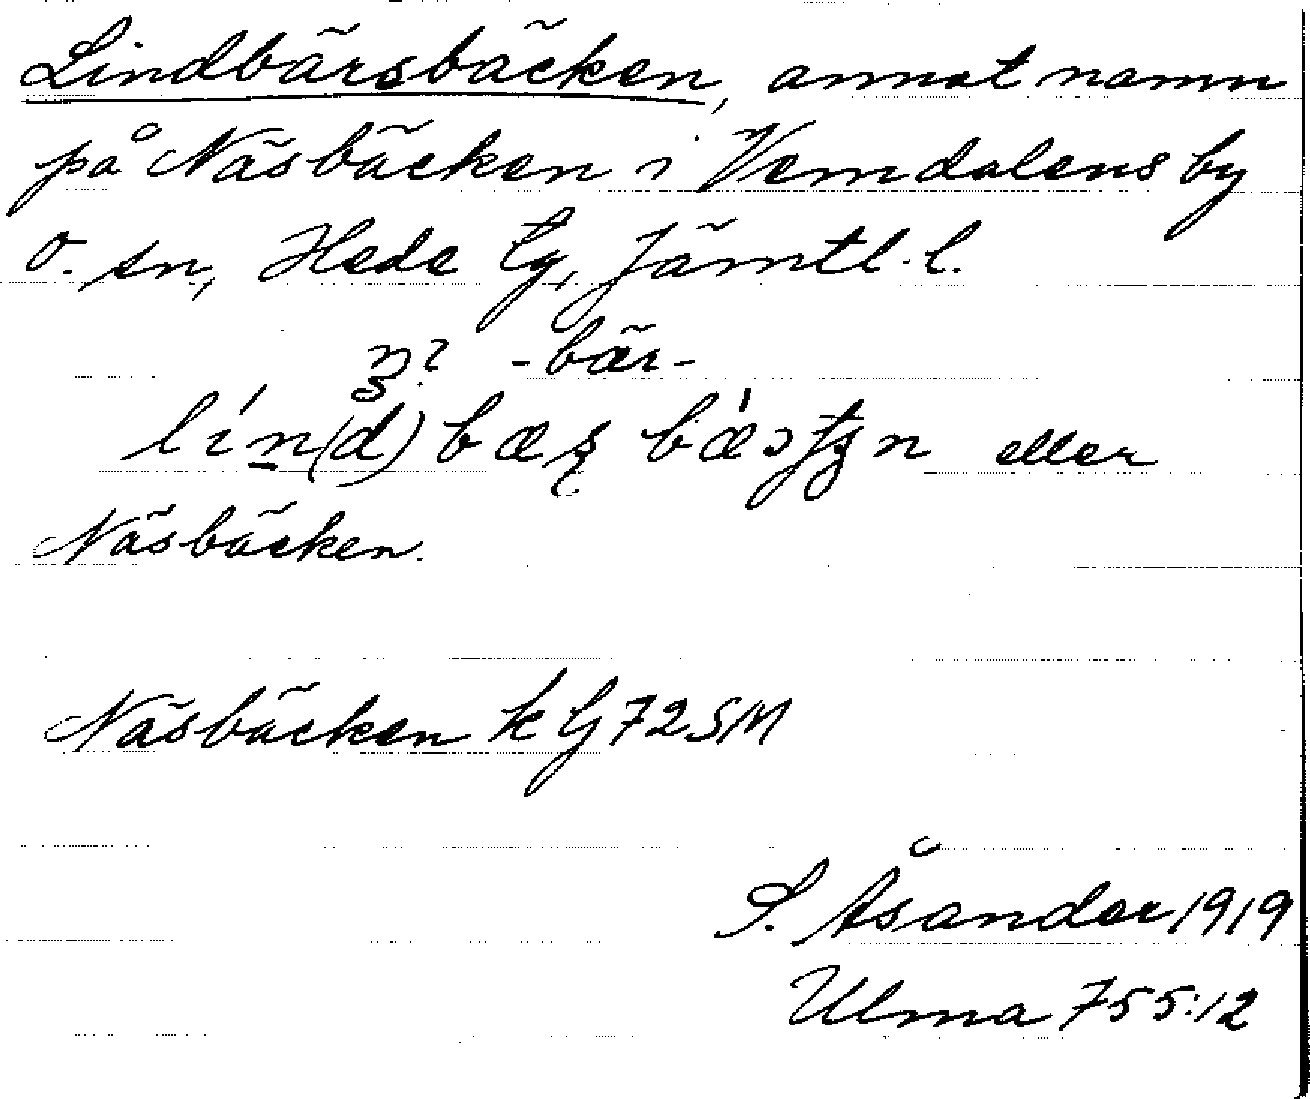 Lindbärsbäcken, annat namn
på Näsbäcken i Vemdalens by
o. sn, Hede tg, Jämtl. l.
? -bär-
lín(d)bæʂ bǽ eller
Näsbäcken.
Näsbäcken k Ig 72 SM
S. Åsander 1919
Ulma 755:12